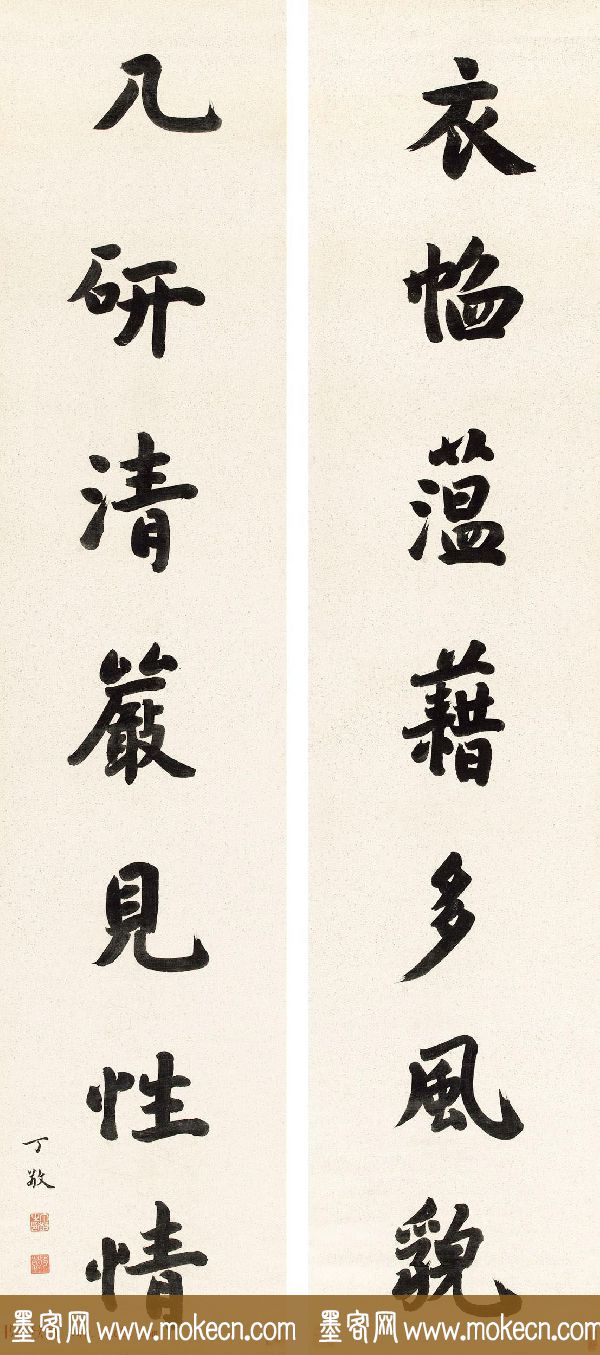 衣帢薀藉多風貌
几研清嚴見性情
丁敬
墨客网 www.mokecn.com
墨客网 www.mokecn.com